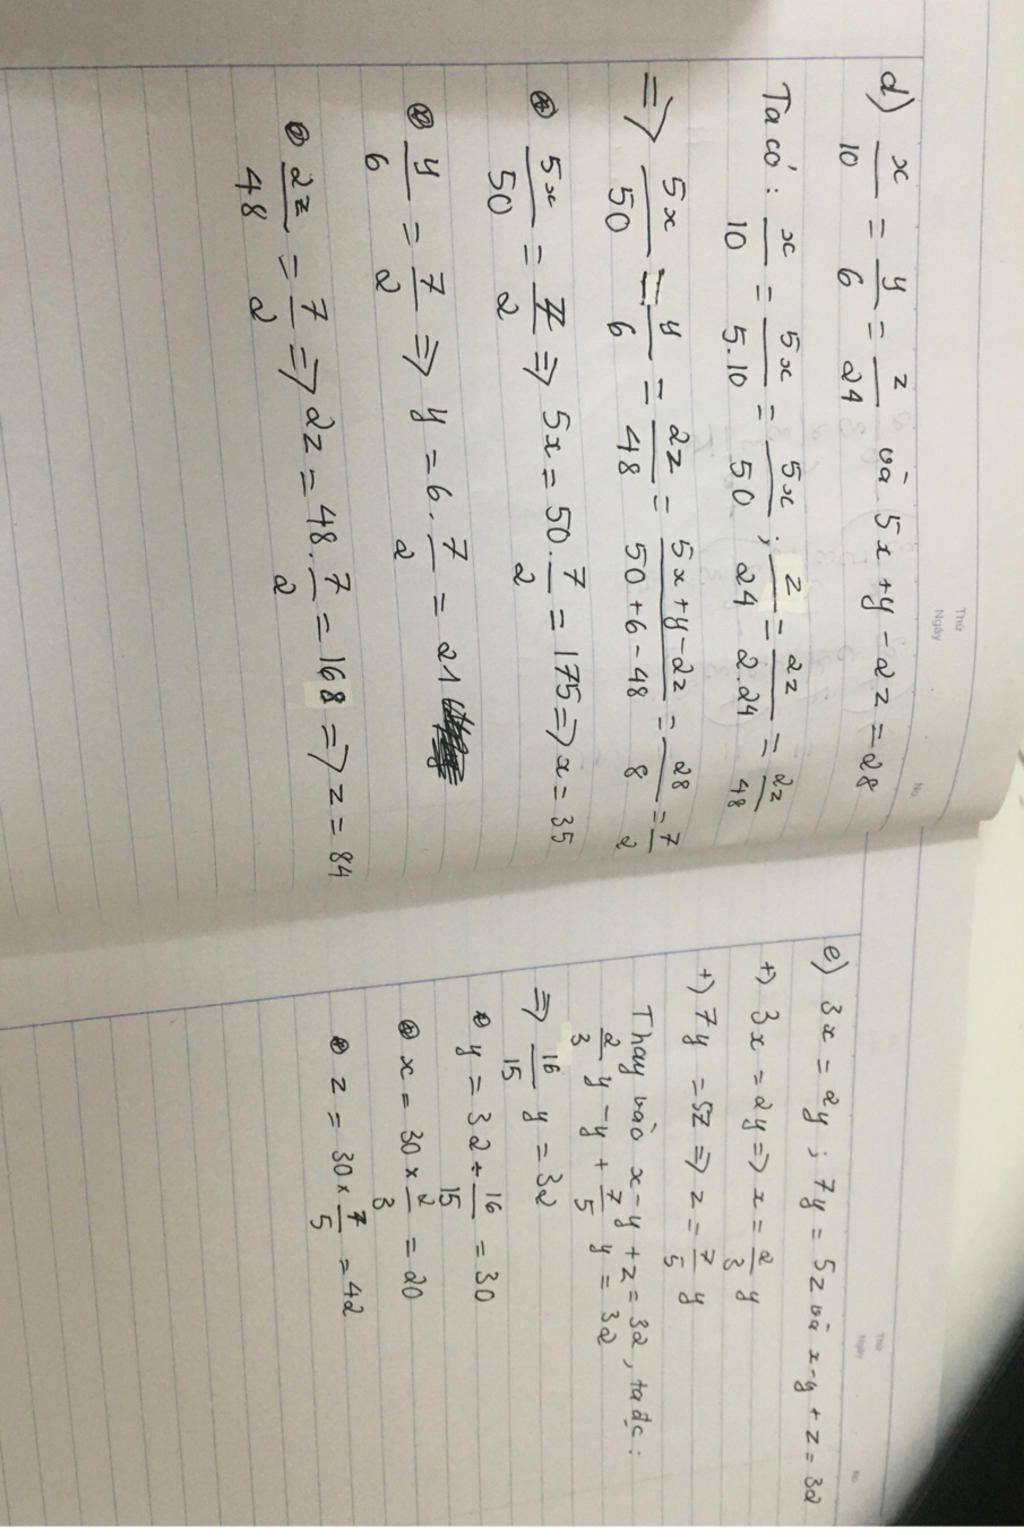 Thứ
Ngày
No
d) x/10 = y/6 = z/24 và 5x + y - 2z = 28
Ta có: x/10 = 5x/5.10 = 5x/50 ; z/24 = 2z/2.24 = 2z/48
=> 5x/50 = y/6 = 2z/48 = 5x+y-2z/50+6-48 = 28/8 = 7/2
5x/50 = 7/2 => 5x = 50.7/2 = 175 => x = 35
y/6 = 7/2 => y = 6.7/2 = 21
2z/48 = 7/2 => 2z = 48.7/2 = 168 => z = 84
Thứ
Ngày
No
e) 3x = 2y ; 7y = 5z và x-y+z = 32
+) 3x = 2y => x = 2/3 y
+) 7y = 5z => z = 7/5 y
Thay vào x-y+z = 32, ta đc :
2/3 y - y + 7/5 y = 32
=> 16/15 y = 32
y = 32 ÷ 16/15 = 30
x = 30 × 2/3 = 20
z = 30 × 7/5 = 42